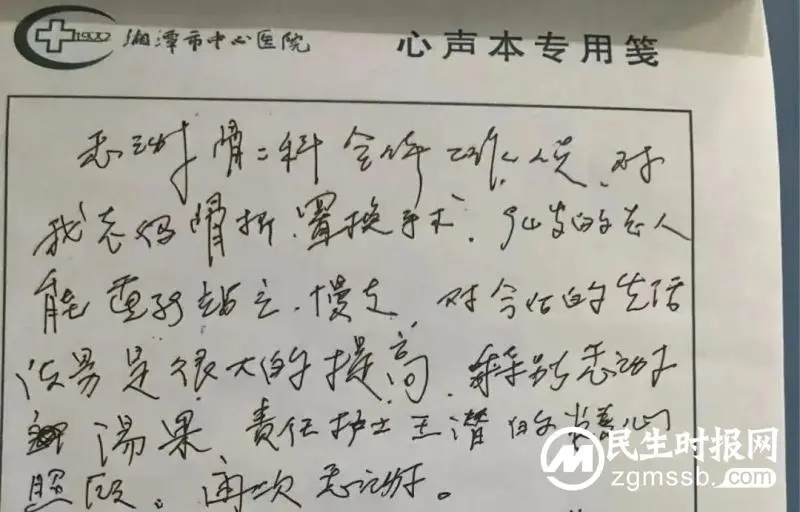 1900 湘潭市中心医院
心声本专用笺
感谢骨二科全体工作人员，对
我老妈骨折，置换手术，91岁的老人
能重新站立，慢走，对今后的生活
质量是很大的提高，特别感谢
汤果，责任护士王潜的尽心
照顾。再次感谢。
民生时报网
zgmssb.com